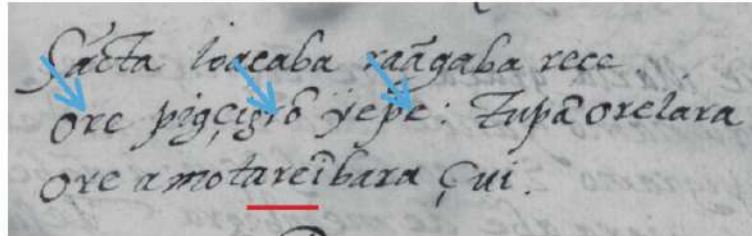 Sãcta Ioaçaba raãgaba rece
ore pigçigrõ ÿepe: Tupã orelara
ore amotareĩbara çui.